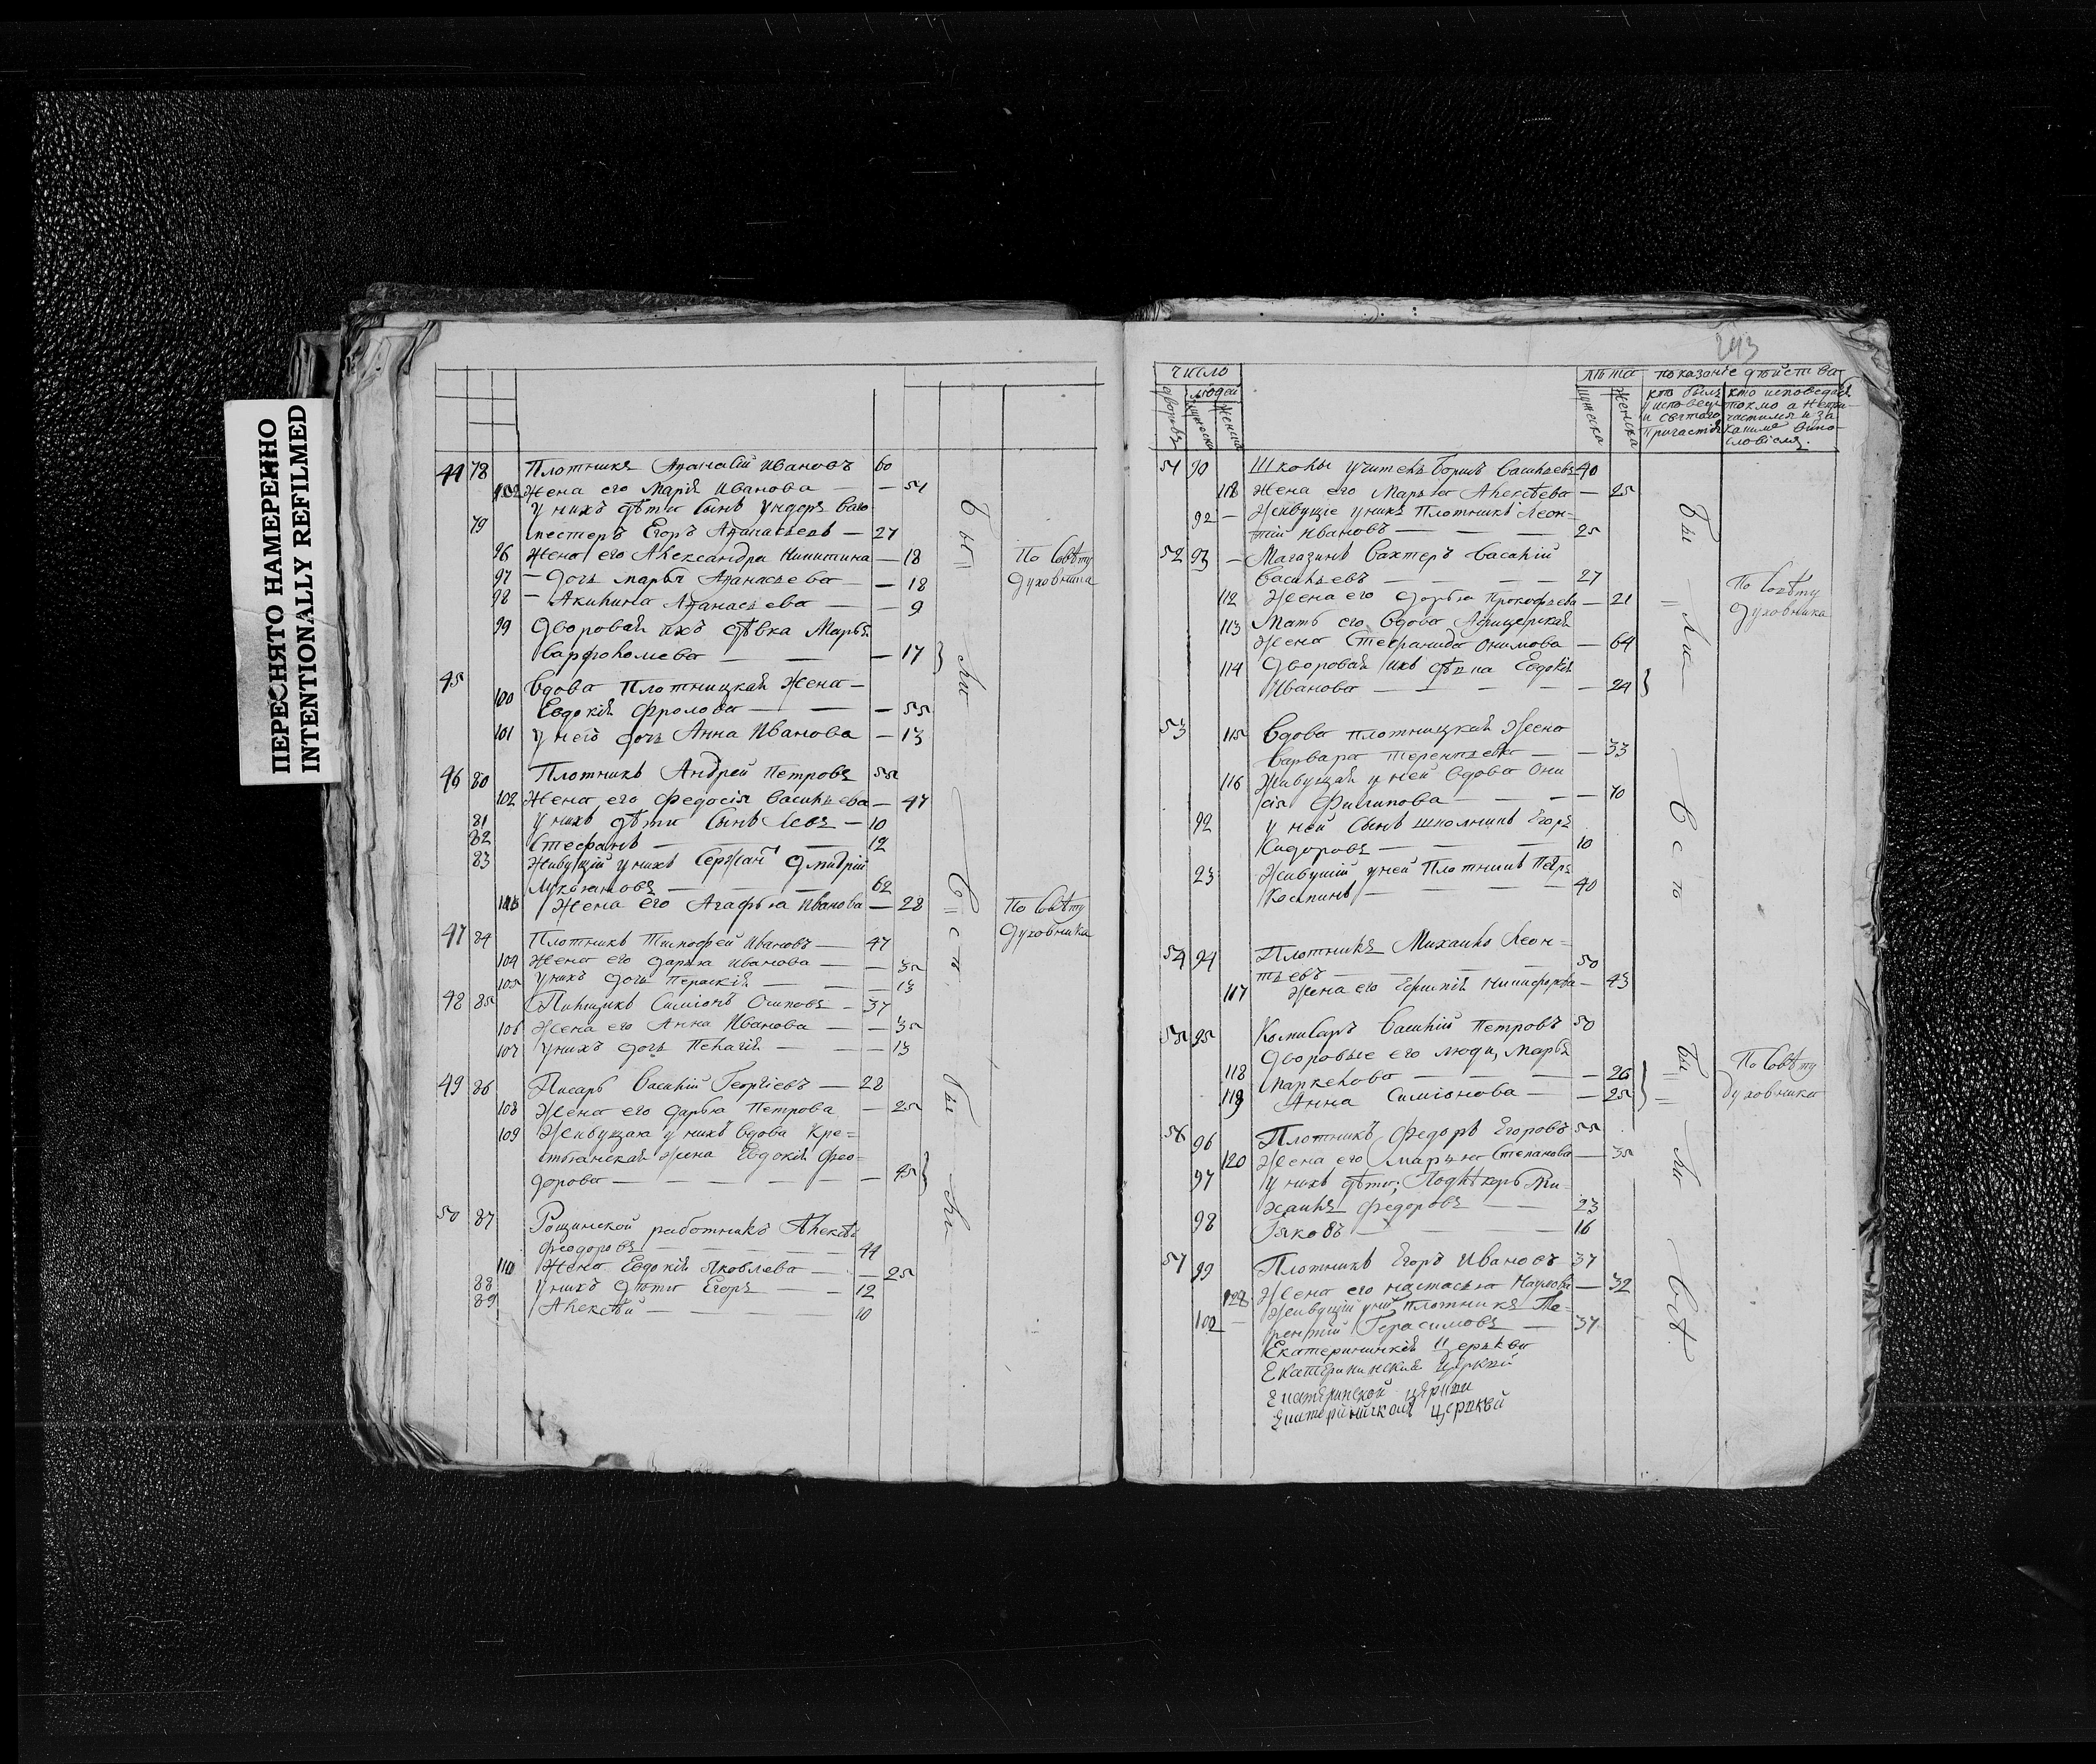 ПЕРЕСНЯТО НАМЕРЕННО
INTENTIONALLY REFILMED
44 78 Плотникъ Афанасій Ивановъ 60
Жена его Марія Иванова — 54
у нихъ дѣти сынъ Ундеръ
79 Егоръ Афанасьевъ — 27
96 Жена его Александра Никитина — 18
97 — дочь Марья Афанасьева — 18
98 — Акилина Афанасьева — 9
99 Дворовая ихъ дѣвка Марья
Варфоломева — 17
45 100 Вдова Плотницкая Жена —
Евдокія Фролова — 55
101 у него дочь Анна Иванова — 13
46 80 Плотникъ Андрей Петровъ
102 Жена его Федосія Васильева — 47
81 у нихъ дѣти сынъ Левъ — 10
82 Стефанъ — 12
83 Живущій у нихъ Сержантъ Дмитрій
62
Жена его Агафья Иванова — 28
47 84 Плотникъ Тимофей Ивановъ — 47
104 Жена его Дарья Иванова — 35
105 у нихъ дочь — 13
48 85 Симіонъ Осиповъ — 37
106 Жена его Анна Иванова — 35
107 у нихъ дочь Пелагія — 13
49 86 Писарь Василій Георгіевъ — 28
108 Жена его Дарья Петрова — 25
109 Живущая у нихъ вдова Кре=
стьянская жена Евдокія Фео=
дорова — 45
50 87 работникъ Алексѣй
Феодоровъ — 44
110 Жена Евдокія Яковлева — 25
88 у нихъ дѣти Егоръ — 12
89 Алексѣй — 10
Бы
ли
По совѣту
духовника
Всѣ
По совѣту
духовника
Бы
ли
293
число
дворовъ
людей
мужеска
женска
лѣта
мужеска
женска
показаніе дѣйства
кто былъ
у исповеди
и святаго
причастія
кто исповедался
токмо а непри-
частился и за
какимъ вино-
словіемъ.
51 90 Школы учитель Борисъ Васильевъ 40
Жена его Марья Алексѣева — 25
92 — Живущіе у нихъ Плотникъ Леон-
тій Ивановъ — 25
52 93 — Магазинъ Вахтеръ Василій
Васильевъ — 27
112 Жена его Дарья Прокофьева — 21
113 Мать его вдова Афицерская
жена Стефанида — 64
114 Дворовая ихъ дѣвка Евдокія
Иванова — 24
53 115 Вдова плотницкая Жена
Варвара Терентьева — 33
116 Живущая у ней вдова Они
сія Филипова — 70
92 у ней сынъ школникъ Егоръ
Сидоровъ — 10
23 Живущій у ней Плотникъ Петръ
40
54 94 Плотникъ Михайло Леон=
тьевъ — 50
117 Жена его Никифорова — 43
55 95 Комисаръ Василій Петровъ 50
Дворовые его люди, Марья
118 Маркелова — 26
119 Анна Симіонова — 25
56 96 Плотникъ Федоръ Егоровъ 55
120 Жена его Марья Степанова — 35
97 у нихъ дѣти; Ми-
хайлъ Федоровъ — 23
98 Яковъ — 16
57 99 Плотникъ Егоръ Ивановъ 37
Жена его Настасья Наумова — 32
Живущій у ней плотникъ Те-
рентій Герасимовъ — 37
Екатерининкія Церькви
Екатерининския церкви
церкви
церквей
Бы
ли
По совѣту
духовника
Всѣ
Бы
ли
По совѣту
духовника
Всѣ